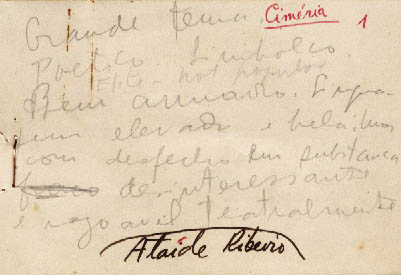 Grande tema. Ciméria 1
Poetico Simbolico.
Elite - not popular
Bem armado. Lingua-
em elevado e belissimo
com desfecho em substancia
desinteressante
e razoavel teatralmente
Ataíde Ribeiro